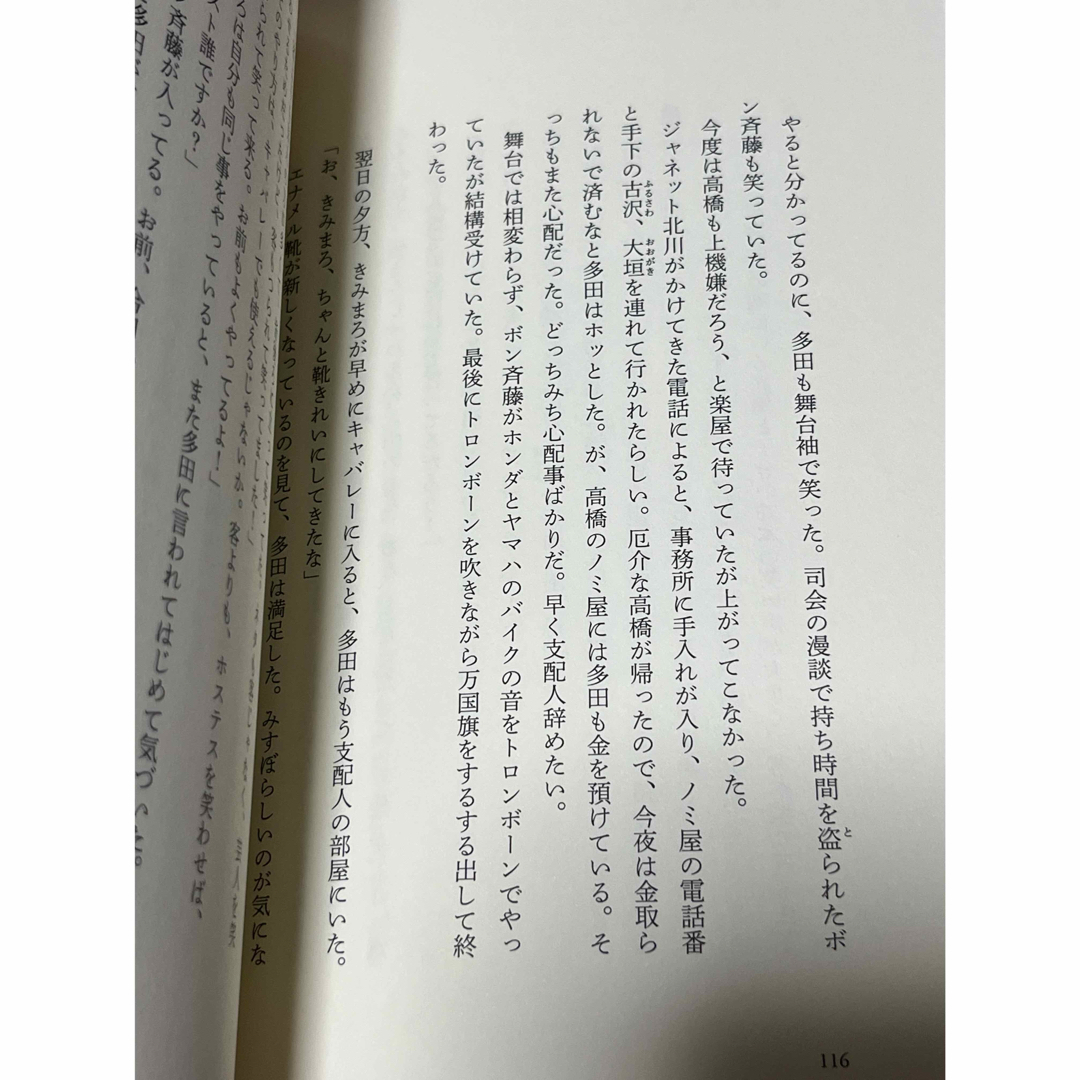 やると分かってるのに、多田も舞台袖で笑った。司会の漫談で持ち時間を盗られたボ
ン斉藤も笑っていた。
今度は高橋も上機嫌だろう、と楽屋で待っていたが上がってこなかった。
ジャネット北川がかけてきた電話によると、事務所に手入れが入り、ノミ屋の電話番
と手下の古沢、大垣を連れて行かれたらしい。厄介な高橋が帰ったので、今夜は金取ら
れないで済むなと多田はホッとした。が、高橋のノミ屋には多田も金を預けている。そ
っちもまた心配だった。どっちみち心配事ばかりだ。早く支配人辞めたい。
舞台では相変わらず、ボン斉藤がホンダとヤマハのバイクの音をトロンボーンでやっ
ていたが結構受けていた。最後にトロンボーンを吹きながら万国旗をするする出して終
わった。
翌日の夕方、きみまろが早めにキャバレーに入ると、多田はもう支配人の部屋にいた。
「お、きみまろ、ちゃんと靴きれいにしてきたな」
エナメル靴が新しくなっているのを見て、多田は満足した。みすぼらしいのが気にな
116
られて笑って来る。お前もよくやってるよ!」
ろは自分も同じ事をやっていると、また多田に言われてはじめて気づいた。
スト誰ですか?」
斉藤が入ってる。お前、